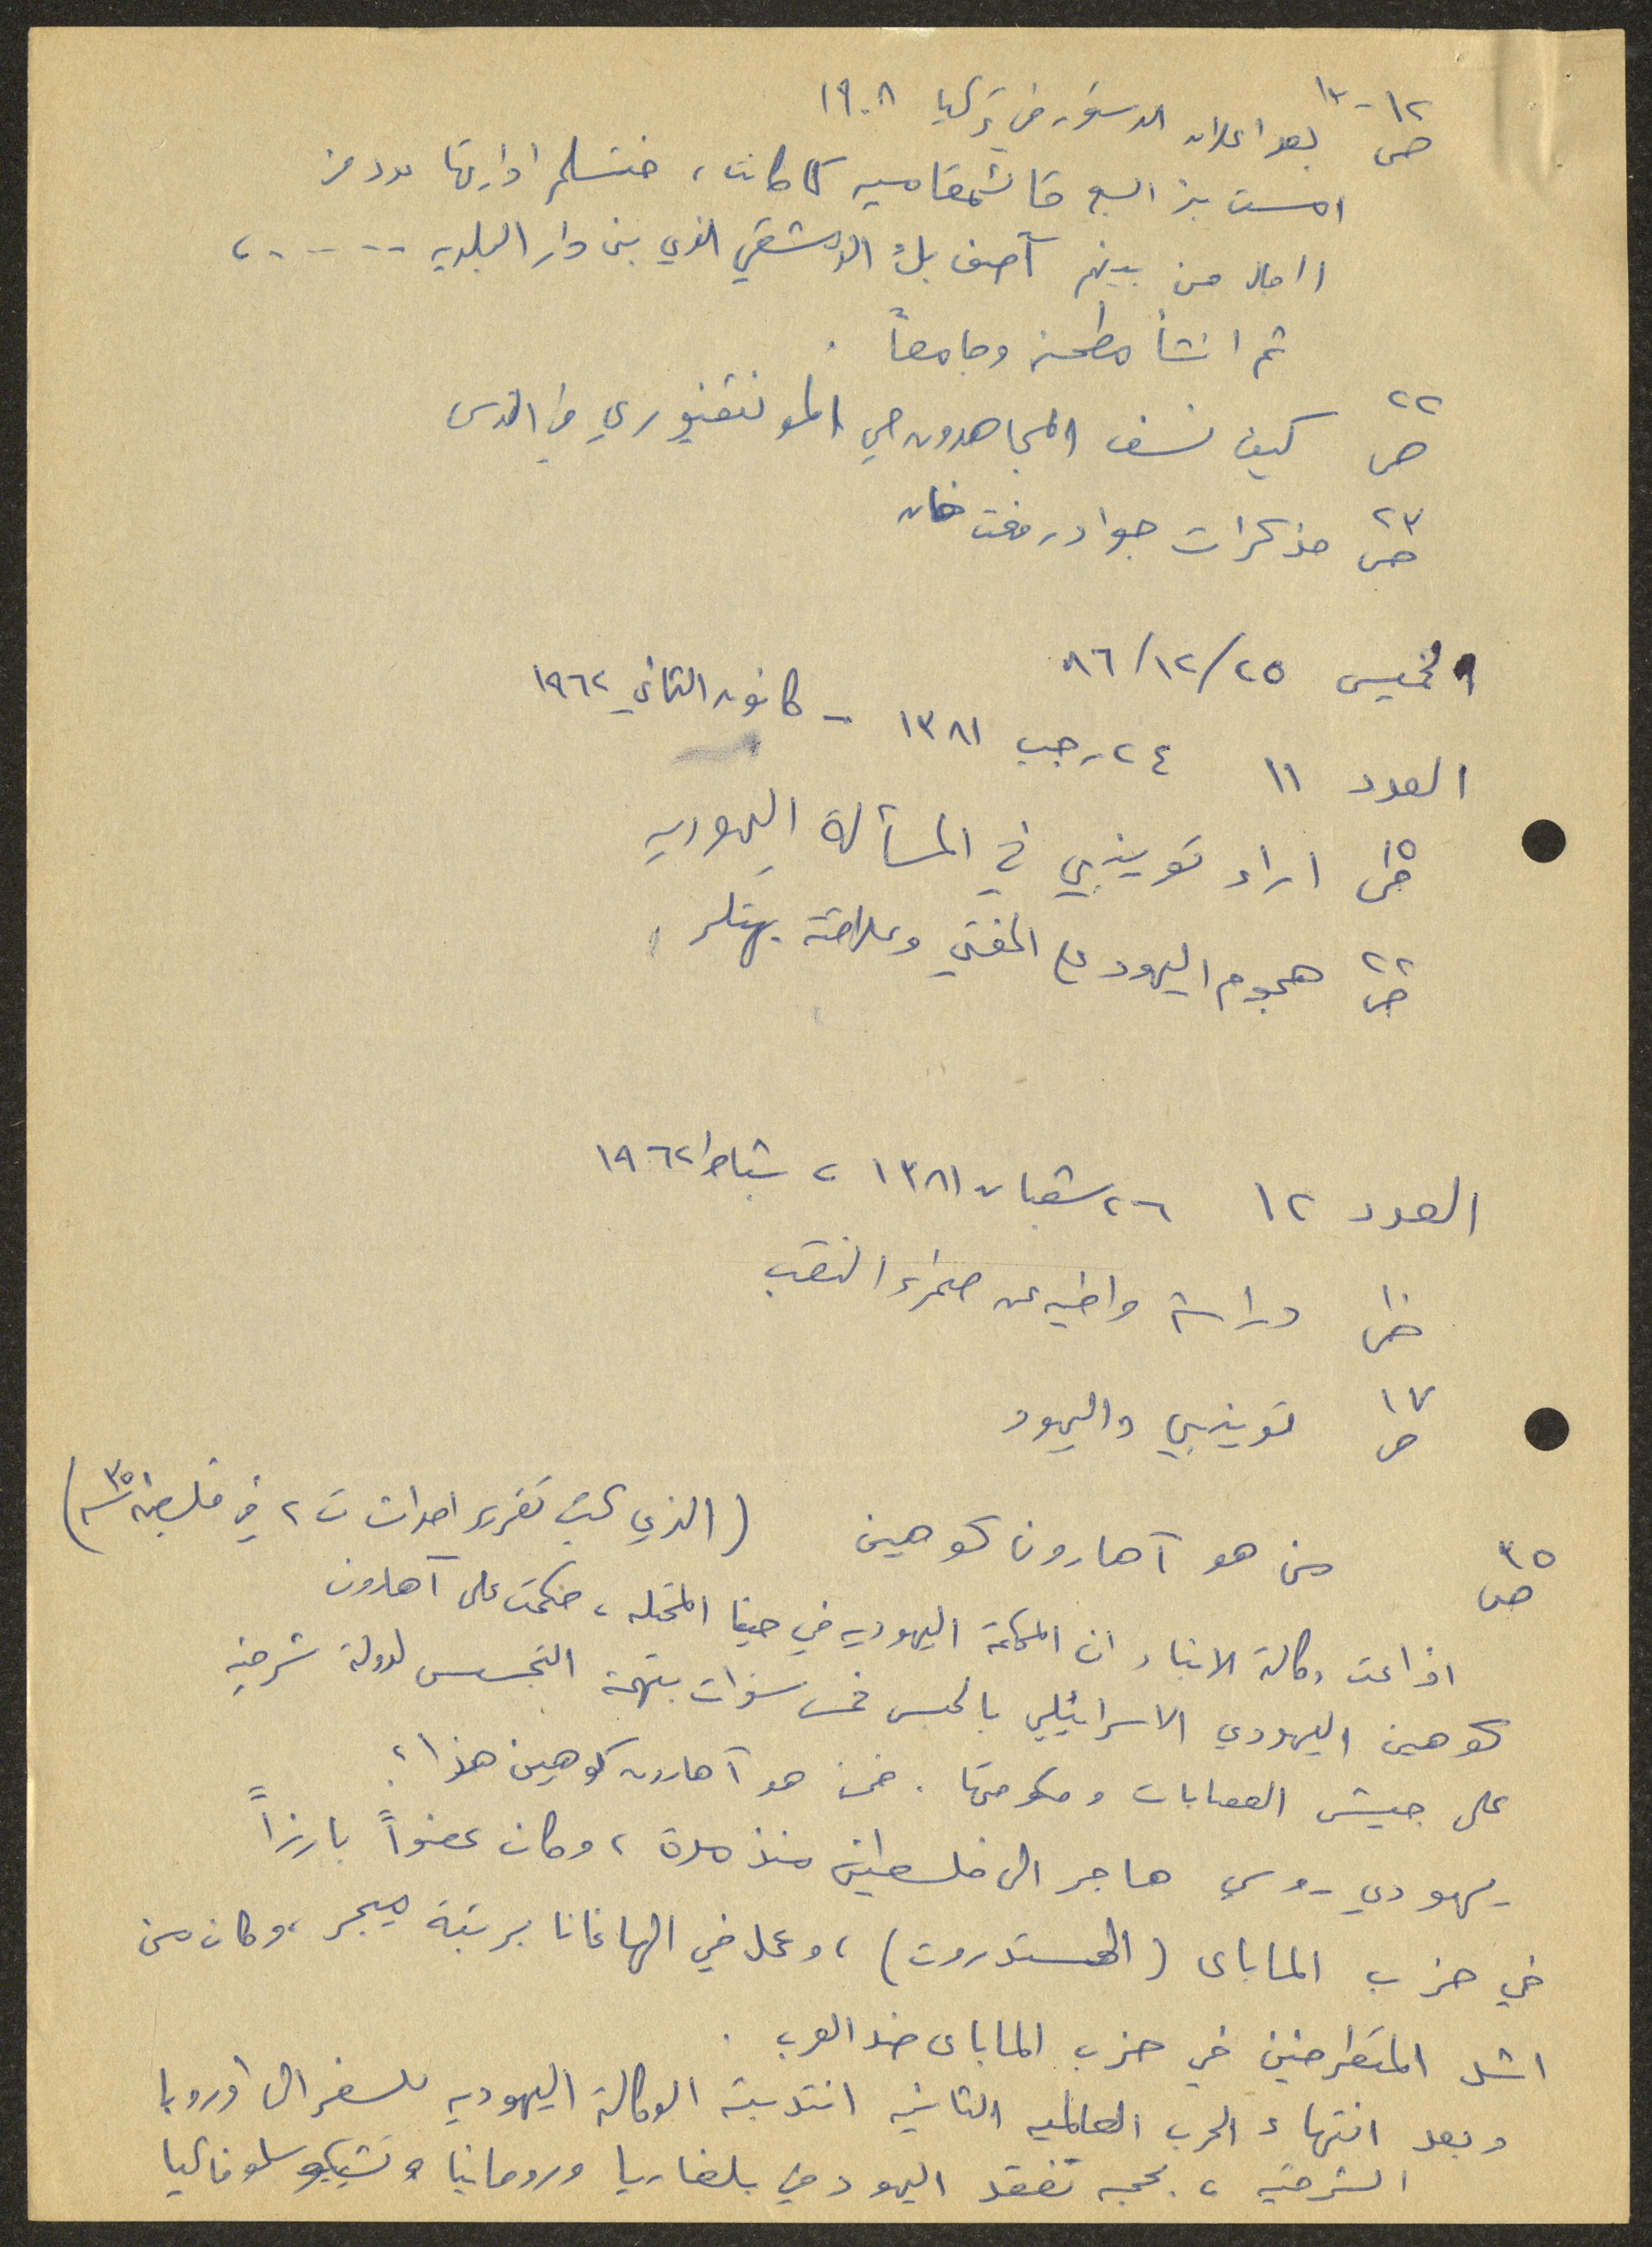 ص ١٢-١٣ بعد اعلان الدستور في تركيا ١٩٠٨
امست بئر السبع قائمقاميه كما كانت، فتسلم ادارتها عدد من
من بينهم آصف بك الدمشقي الذي بنى دار البلديه ......،
ثم انشأ مطحنة وجامعاً .
ص ٢٢ كيف نسف المجاهدون حي المونتفيوري في القدس
ص ٢٣ مذكرات جواد رفعت خان
الخميس ٢٥/١٢/٨٦
العدد ١١ ٢٤ رجب ١٣٨١ - كانون الثاني ١٩٦٢
ص ١٥ اراء توينبي في المسألة اليهوديه
ص ٢٢ هجوم اليهود على المفتي وعلاقته بهتلر
العدد ١٢ ٢٦ شعبان ١٣٨١، شباط ١٩٦٢
ص ١٠ دراسة وافيه عن صحراء النقب
ص ١٧ توينبي واليهود
ص ٣٥ من هو آهارون كوهين (الذي كتب تقرير احداث ت ٢ في فلسطين ٣٥)
اذاعت وكالة الانباء ان المحكمة اليهوديه في حيفا المحتله، حكمت على آهارون
كوهين اليهودي الاسرائيلي بالحبس خمس سنوات بتهمة التجسس لدولة شرقيه
على جيش العصابات وحكومتها . فمن هو آهارون كوهين هذا؟
يهودي روسي هاجر الى فلسطين منذ مدة، وكان عضواً بارزاً
في حزب الماباى (الهستدروت)، وعمل في الهاغانا برتبة ميجر، وكان من
اشد المتطرفين في حزب الماباى ضد العرب .
وبعد انتهاء الحرب العالميه الثانيه انتدبته الوكالة اليهوديه للسفر الى اوروبا
الشرقيه، بحجة تفقد اليهود في بلغاريا ورومانيا وتشيكوسلوفاكيا